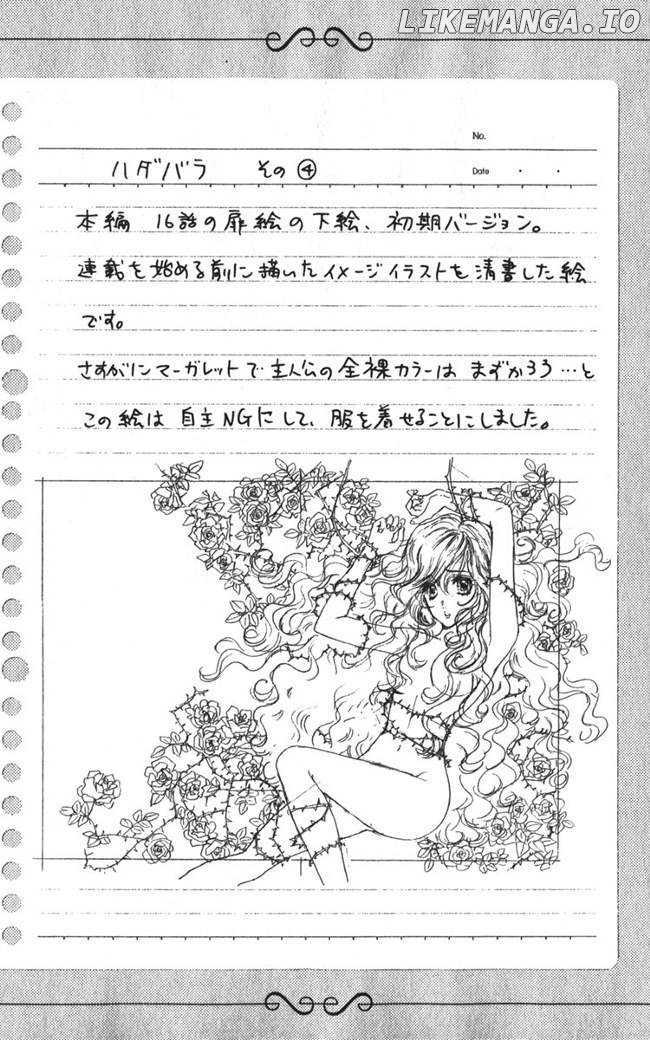 LIKEMANGA.IO
No.
ハダバラ その④
Date
本編 16話の扉絵の下絵、初期バージョン。
連載を始める前に描いたイメージイラストを清書した絵
です。
さすがにマーガレットで主人公の全裸カラーは まずかろう…と
この絵は 自主NGにして、服を着せることにしました。